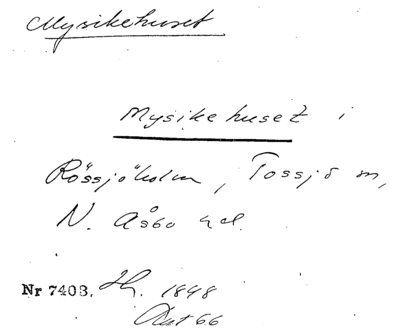 Mysikehuset
Mysikehuset i
Rössjöholm, Tossjö m,
N. Åsbo hd.
Nr 7403. Hg. 1848
Aut 66